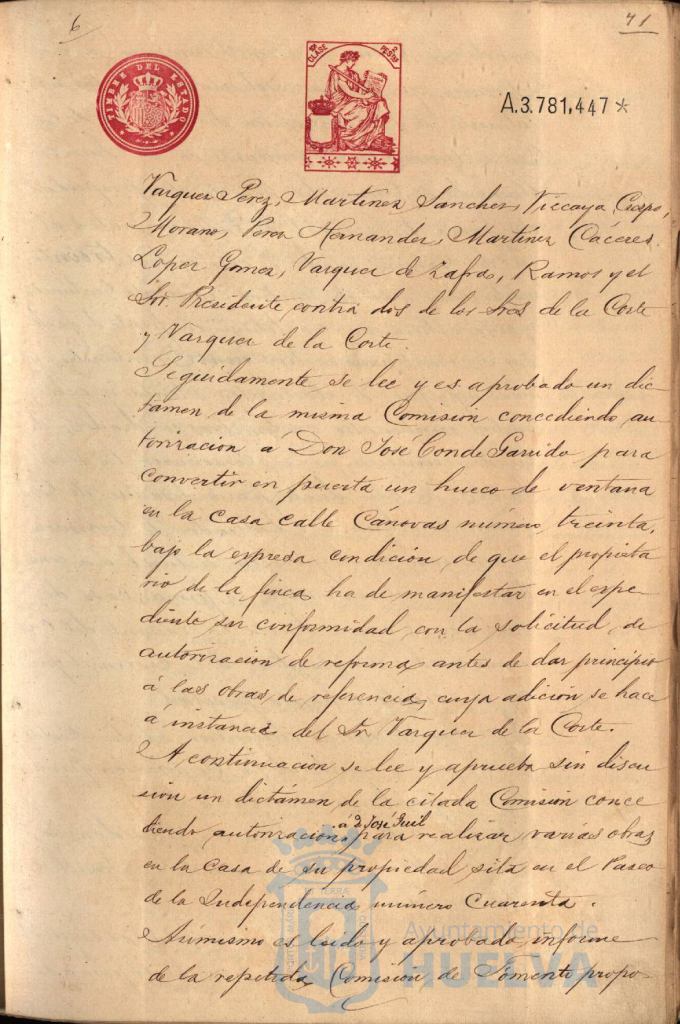 6
71
TIMBRE DEL ESTADO
10ª CLASE 2 PESTAS
A.3.781,447*
Vazquez Perez, Martinez Sanchez, Vizcaya, Crespo,
Morano, Perez Hernandez, Martínez Cáceres,
Lopez Gomez, Vazquez de Zafra, Ramos y el
Sr. Presidente contra dos de los Sres de la Corte
y Vazquez de la Corte.
Seguidamente se lee y es aprobado un dic-
tamen de la misma Comisión concediendo au-
torizacion á Don José Conde Garrido para
convertir en puerta un hueco de ventana
en la casa calle Cánovas número treinta,
bajo la espresa condición de que el propieta
rio de la finca, ha de manifestar en el espe-
diente su conformidad con la solicitud de
autorización de reforma, antes de dar principio
á las obras de referencia, cuya adición se hace
á instancia del Sr Vazquez de la Corte.
A continuacion se lee y aprueba sin discu
sión un dictámen de la citada Comisión conce
diendo autorizacion á D. José para realizar varias obras
en la casa de su propiedad sita en el Paseo
de la Independencia número Cuarenta.
Asimismo es leido y aprobado, informe
de la repetida Comisión de Fomento propo-
Ayuntamiento de
HUELVA